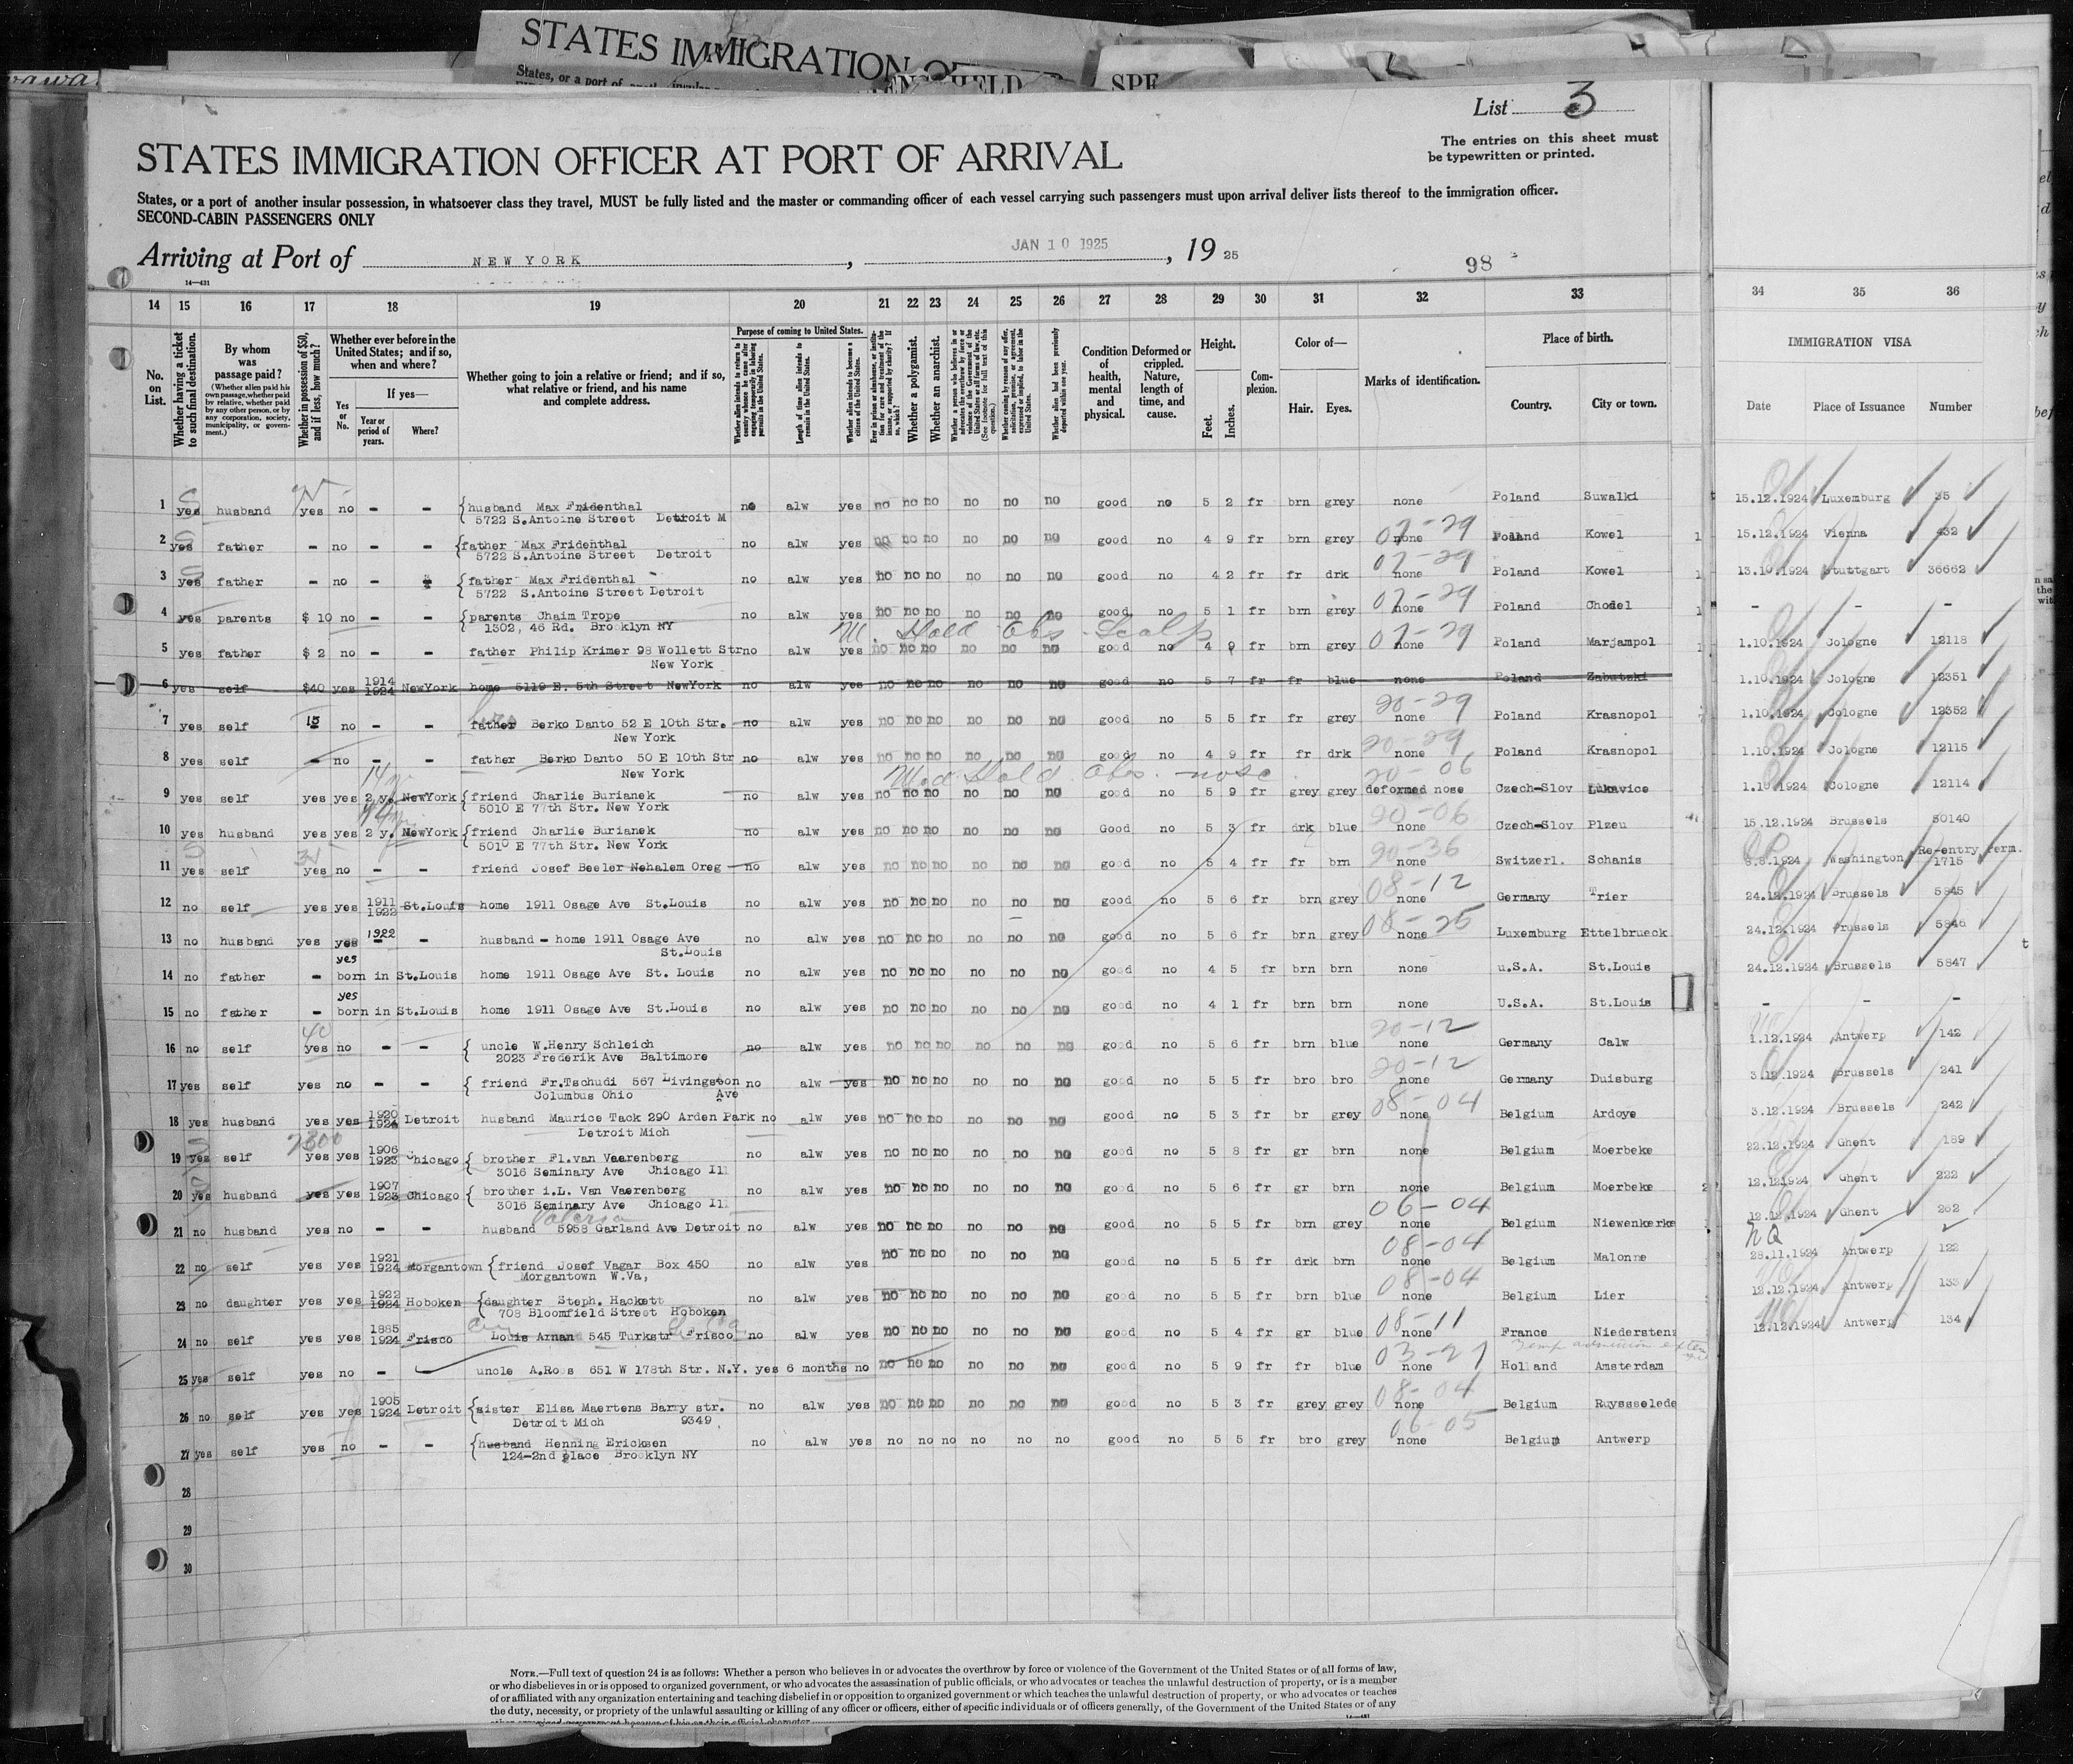 STATES IMMIGRATION
States, or a port of
HELD
SPE
List 3
The entries on this sheet must
be typewritten or printed.
STATES IMMIGRATION OFFICER AT PORT OF ARRIVAL
States, or a port of another insular possession, in whatsoever class they travel, MUST be fully listed and the master or commanding officer of each vessel carrying such passengers must upon arrival deliver lists thereof to the immigration officer.
SECOND-CABIN PASSENGERS ONLY
Arriving at Port of NEW YORK , JAN 10 1925 , 19 25
98
14-431
14 15 16 17 18 19 20 21 22 23 24 25 26 27 28 29 30 31 32 33 34 35 36
No. on List.
Whether having a ticket to such final destination.
By whom was passage paid?
(Whether alien paid his own passage, whether paid by relative, whether paid by any other person, or by any corporation, society, municipality, or government.)
Whether in possession of $50, and if less, how much?
Whether ever before in the United States; and if so, when and where?
Yes or No.
If yes—
Year or period of years.
Where?
Whether going to join a relative or friend; and if so, what relative or friend, and his name and complete address.
Purpose of coming to United States.
Whether alien intends to return to country whence he came after engaging temporarily in laboring pursuits in the United States.
Length of time alien intends to remain in the United States.
Whether alien intends to become a citizen of the United States.
Whether a polygamist.
Whether an anarchist.
Whether alien had been previously deported within one year.
Condition of health, mental and physical.
Deformed or crippled. Nature, length of time, and cause.
Height.
Feet. Inches.
Complexion.
Color of—
Hair. Eyes.
Marks of identification.
Place of birth.
Country. City or town.
IMMIGRATION VISA
Date Place of Issuance Number
1 yes husband yes no - - husband Max Fridenthal no alw yes no no no no no no good no 5 2 fr brn grey none Poland Suwalki 15.12.1924 Luxemburg 35
5722 S.Antoine Street Detroit M
07-29
2 yes father - no - - father Max Fridenthal no alw yes no no no no no no good no 4 9 fr brn grey none Poland Kowel 15.12.1924 Vienna 432
5722 S.Antoine Street Detroit
07-29
3 yes father - no - father Max Fridenthal no alw yes no no no no no no good no 4 2 fr fr drk none Poland Kowel 13.10.1924 Stuttgart 36662
5722 S.Antoine Street Detroit
07-29
4 yes parents $ 10 no - - parents Chaim Trope no alw yes no no no no no no good no 5 1 fr brn grey none Poland Chodel - - -
1302, 46 Rd. Brooklyn NY
Hold Obs. Scalp
07-29
5 yes father $ 2 no - - father Philip Krimer 98 Wollett Str no alw yes no no no no no no good no 4 9 fr brn grey none Poland Marjampol 1.10.1924 Cologne 12118
New York
6 yes self $40 yes 1914 1924 NewYork home 5119 E. 5th Street NewYork no alw yes no no no no no no good no 5 7 fr fr blue none Poland Zabutski 1.10.1924 Cologne 12351
20-29
7 yes self 15 no - - father Berko Danto 52 E 10th Str. no alw yes no no no no no no good no 5 5 fr fr grey none Poland Krasnopol 1.10.1924 Cologne 12352
New York
20-29
8 yes self - no - - father Berko Danto 50 E 10th Str no alw yes no no no no no no good no 4 9 fr fr drk none Poland Krasnopol 1.10.1924 Cologne 12115
New York
Med Hold Obs. nose
20-06
9 yes self yes yes 2 y. NewYork friend Charlie Burianek no alw yes no no no no no no good no 5 9 fr grey grey deformed nose Czech-Slov Lukavice 1.10.1924 Cologne 12114
5010 E 77th Str. New York
20-06
10 yes husband yes yes 2 y. NewYork friend Charlie Burianek no alw yes no no no no no no Good no 5 3 fr drk blue none Czech-Slov Plzeu 15.12.1924 Brussels 50140
5010 E 77th Str. New York
20-36
11 yes self yes no - - friend Josef Beeler Nehalem Oreg no alw yes no no no no no no good no 5 4 fr fr brn none Switzerl. Schanis 8.8.1924 Washington Re-entry Perm. 1715
08-12
12 no self yes yes 1911 1922 St.Louis home 1911 Osage Ave St.Louis no alw yes no no no no no no good no 5 6 fr brn grey none Germany Trier 24.12.1924 Brussels 5845
08-25
13 no husband yes yes 1922 - - husband - home 1911 Osage Ave no alw yes no no no no no no good no 5 6 fr brn grey none Luxemburg Ettelbrueck 24.12.1924 Brussels 5846
St.Louis
yes
14 no father - born in St.Louis home 1911 Osage Ave St. Louis no alw yes no no no no no no good no 4 5 fr brn brn none u.S.A. St.Louis 24.12.1924 Brussels 5847
yes
15 no father - born in St.Louis home 1911 Osage Ave St.Louis no alw yes no no no no no no good no 4 1 fr brn brn none U.S.A. St.Louis - - -
40
20-12
16 no self yes no - - uncle W.Henry Schleich no alw yes no no no no no no good no 5 6 fr brn blue none Germany Calw 1.12.1924 Antwerp 142
2023 Frederik Ave Baltimore
20-12
17 yes self yes no - - friend Fr.Tschudi 567 Livingston no alw yes no no no no no no good no 5 5 fr bro bro none Germany Duisburg 3.12.1924 Brussels 241
Columbus Ohio Ave
08-04
18 yes husband yes yes 1920 1924 Detroit husband Maurice Tack 290 Arden Park no alw yes no no no no no no good no 5 3 fr br grey none Belgium Ardoye 3.12.1924 Brussels 242
Detroit Mich
19 yes self yes yes 1906 1923 Chicago brother Fl.van Vaerenberg no alw yes no no no no no no good no 5 8 fr gr brn none Belgium Moerbeke 22.12.1924 Ghent 189
3016 Seminary Ave Chicago Ill
20 yes husband yes yes 1907 1923 Chicago brother i.L. Van Vaerenberg no alw yes no no no no no no good no 5 6 fr gr brn none Belgium Moerbeke 12.12.1924 Ghent 222
3016 Seminary Ave Chicago Ill
06-04
21 no husband yes no - - husband 5958 Garland Ave Detroit no alw yes no no no no no no good no 5 5 fr brn grey none Belgium Niewenkerke 12.12.1924 Ghent 202
NQ
08-04
22 no self yes yes 1921 1924 Morgantown friend Josef Vagar Box 450 no alw yes no no no no no no good no 5 5 fr drk brn none Belgium Malonne 28.11.1924 Antwerp 122
Morgantown W.Va,
08-04
23 no daughter yes yes 1922 1924 Hoboken daughter Steph. Hackett no alw yes no no no no no no good no 5 5 fr brn blue none Belgium Lier 12.12.1924 Antwerp 133
708 Bloomfield Street Hoboken
08-11
24 no self yes yes 1885 1924 Frisco Louis Arnan 545 Turkstr Frisco no alw yes no no no no no no good no 5 4 fr gr blue none France Niederstenz 12.12.1924 Antwerp 134
Temp admission
03-27
25 yes self yes no - uncle A.Roos 651 W 178th Str. N.Y. yes 6 months no no no no no no no good no 5 9 fr fr blue none Holland Amsterdam
08-04
26 no self yes yes 1905 1924 Detroit sister Elisa Maertens Barry str. no alw yes no no no no no no good no 5 3 fr grey grey none Belgium Ruyssselede
Detroit Mich 9349
06-05
27 yes self yes no - - husband Henning Ericksen no alw yes no no no no no no good no 5 5 fr bro grey none Belgium Antwerp
124-2nd place Brooklyn NY
28
29
30
NOTE.—Full text of question 24 is as follows: Whether a person who believes in or advocates the overthrow by force or violence of the Government of the United States or of all forms of law,
or who disbelieves in or is opposed to organized government, or who advocates the assassination of public officials, or who advocates or teaches the unlawful destruction of property, or is a member
of or affiliated with any organization entertaining and teaching disbelief in or opposition to organized government or which teaches the unlawful destruction of property, or who advocates or teaches
the duty, necessity, or propriety of the unlawful assaulting or killing of any officer or officers, either of specific individuals or of officers generally, of the Government of the United States or of any